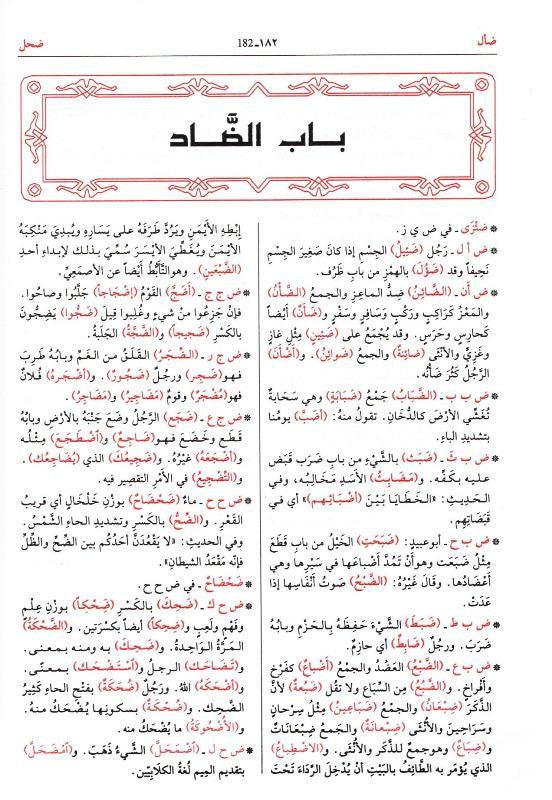 ضأل
١٨٢ـ182
ضحل
باب الضَّاد
* ضَئْزَى ـ في ض ي ز.
* ض أ ل ـ رَجُل (ضَئِيلُ) الجِسْمِ إذا كانَ صَغِيرَ الجِسْمِ
نَحِيفاً وقد (ضَؤُلَ) بالهَمْزِ من باب ظَرُف.
* ض أ ن ـ (الضَّائِنُ) ضِدُّ المـاعِزِ والجمعُ (الضَّأْنُ)
والمَعْزُ كَرَاكِبٍ ورَكْبٍ وسَافِرٍ وسَفْرٍ و(ضَأَن) أيْضاً
كحارِسٍ وحَرَسٍ. وقد يُجْمَعُ على (ضَئِينٍ) مِثْلِ غازٍ
وغَزِيٍّ والأُنْثَى (ضائِنَةٌ) والجمعُ (ضَوائِنُ). و(أَضْأَنَ)
الرَّجُلُ كَثُرَ ضَأْنُه.
* ض ب ب ـ (الضَّبَابُ) جَمْعُ (ضَبَابَةٍ) وهي سَحَابَةٌ
تُغَشِّي الأرْضَ كالدُّخَانِ. تقولُ منهُ: (أَضَبَّ) يومُنا
بتشديد الباء.
* ض ب ث ـ (ضَبَثَ) بالشَّيْءِ من بابِ ضَرَبَ قَبَضَ
عليه بكَفِّه. و(مَضَابِثُ) الأَسَدِ مَخَالِبُه، وفي
الحديثِ: «الخَطَايَا بَيْنَ (أَضْبَاثِهِم)» أي في
قَبَضَاتِهِم.
* ض ب ح ـ أبوعبيد: (ضَبَحَتِ) الخَيْلُ من باب قَطَعَ
مِثْلُ ضَبَعَت وهو أنْ تَمُدَّ أضْبَاعَها في سَيْرِها وهي
أعْضَادُها. وقالَ غَيْرُهُ: (الضَّبْحُ) صَوْتُ أنْفَاسِها إذا
عَدَتْ.
* ض ب ط ـ (ضَبَطَ) الشَّيْءَ حَفِظَهُ بالحَزْمِ وبابُهُ
ضَرَبَ. ورجلٌ (ضَابِطٌ) أي حازِمٌ.
* ض ب ع ـ (الضَّبْعُ) العَضُدُ والجمعُ (أَضْبَاعٌ) كفَرْخٍ
وأفْرَاخٍ. و(الضَّبُعُ) مِنَ السِّبَاعِ ولا تَقُل (ضَبُعَةٌ) لأنَّ
الذَّكَرَ (ضِبْعَانُ) والجمعُ (ضَبَاعِينُ) مِثْلُ سِرْحانٍ
وسَرَاحِينَ والأُنْثَى (ضِبْعَانَةٌ) والجَمعُ ضِبْعَانَاتٌ
و(ضِبَاعٌ) وهوجمعٌ للذَّكَرِ والأُنْثَى. و(الاضْطِبَاعُ)
الذي يُؤمَر به الطَّائِفُ بالبَيْتِ أنْ يُدْخِلَ الرِّدَاءَ تَحْتَ
إبْطِهِ الأَيْمَنِ ويَرُدَّ طَرَفَهُ على يَسَارِهِ ويُبْدِيَ مَنْكِبَهُ
الأيْمَنَ ويُغَطِّيَ الأيْسَرَ سُمِّيَ بـذلك لإبداءِ أحدِ
(الضَّبْعَيْنِ). وهوالتَّأَبُّطُ أيْضاً عن الأصمَعِيِّ.
* ض ج ج ـ (أَضَجَّ) القَوْمُ (إضْجَاجاً) جَلَّبُوا وصاحُوا.
فإنْ جَزِعُوا من شيءٍ وغُلِبوا قيلَ (ضَجُّوا) يَضِجُّونَ
بالكَسْرِ (ضَجِيجاً) و(الضَّجَّةُ) الجَلَبَةُ.
* ض ج ر ـ (الضَّجَرُ) القَلَقُ من الغَمِّ وبابُهُ طَرِبَ
فهو(ضَجِر) ورجلٌ (ضَجُورٌ). و(أَضْجَرهُ) فُلانٌ
فهو(مُضْجَرٌ) وقومٌ (مَضَاجِيرُ) و(مَضَاجِرُ).
* ض ج ع ـ (ضَجَعَ) الرَّجُلُ وضَعَ جَنْبَهُ بالأرْضِ وبابُهُ
قَطَع وخَضَع فهـو(ضَاجِعٌ) و(اضْطَجَعَ) مِثْلُـه
و(أَضْجَعَهُ) غَيْرُهُ. و(ضَجِيعُكَ) الذي (يُضَاجِعُك).
و(التَّضْجِيعُ) في الأَمْرِ التقصير فيه.
* ض ح ح ـ ماءٌ (ضَحْضَاحٌ) بوزنِ خَلْخَالٍ أي قريبُ
القَعْرِ. و(الضِّحُّ) بالكَسْرِ وتشديدِ الحاءِ الشَّمْسُ.
وفي الحديث: «لا يَقْعُدَنَّ أحَدُكُم بين الضِّحِّ والظِّلِّ
فإنَّه مَقْعَدُ الشيطانِ».
* ضَحْضَاحٌ ـ في ض ح ح.
* ض ح ك ـ (ضَحِكَ) بالكَسْرِ (ضَحِكاً) بوزن عِلْمٍ
وفَهْمٍ ولَعِبٍ و(ضِحِكاً) أيضاً بكسرتَين. و(الضَّحْكَةُ)
المَـرَّةُ الـوَاحِـدَةُ. و(ضَحِكَ) به ومنه بمعنى.
و(تَضَاحَكَ) الرجلُ و(اسْتَضْحَك) بـمعنًى.
و(أَضْحَكَهُ) اللهُ. ورَجُلٌ (ضُحَكَةٌ) بفتح الحاء كَثِيرُ
الضَّحِك. و(ضُحْكَةٌ) بسكونِها يُضْحَكُ منهُ.
و(الأُضْحُوكَةُ) ما يُضْحَكُ منه.
* ض ح ل ـ (اضْمَحَلَّ) الشَّيْءُ ذَهَبَ. و(امْضَحَلَّ)
بتقديم المِيمِ لُغَةُ الكِلَابِيِّين.